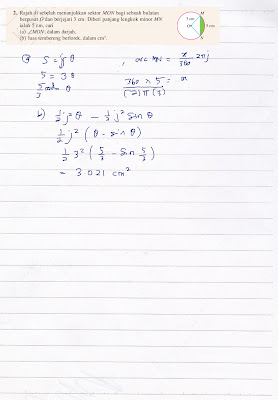 2. Rajah di sebelah menunjukkan sektor MON bagi sebuah bulatan
berpusat O dan berjejari 3 cm. Diberi panjang lengkok minor MN
ialah 5 cm, cari
(a) ∠MON, dalam darjah,
(b) luas tembereng berlorek, dalam cm².
M
3 cm
O
N
a) S = jθ , arc = x/360 2πj
5 = 3θ
5/3 rad = θ
360 × 5 / (2)π(3) = x
b) ½ j²θ − ½ j² sin θ
½ j² (θ − sin θ)
½ 3² (5/3 − sin 5/3)
= 3.021 cm²